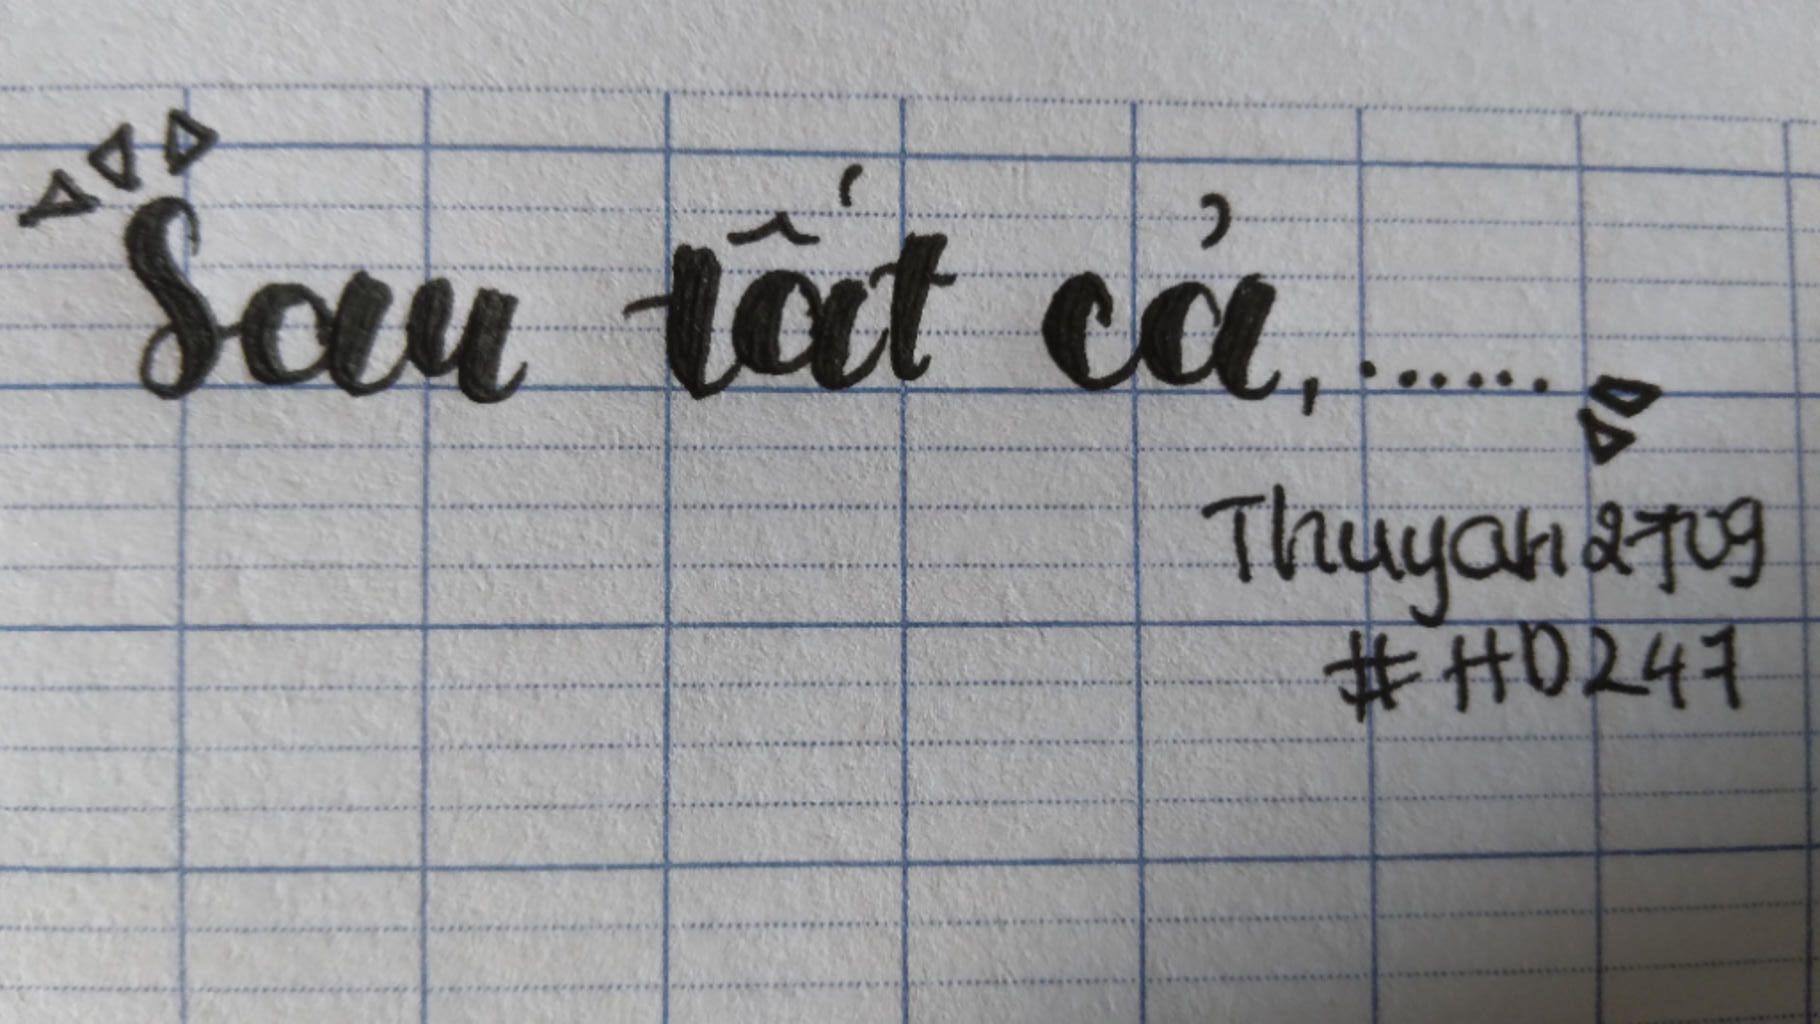 Sau tất cả,......
Thuyan2709
#HD247